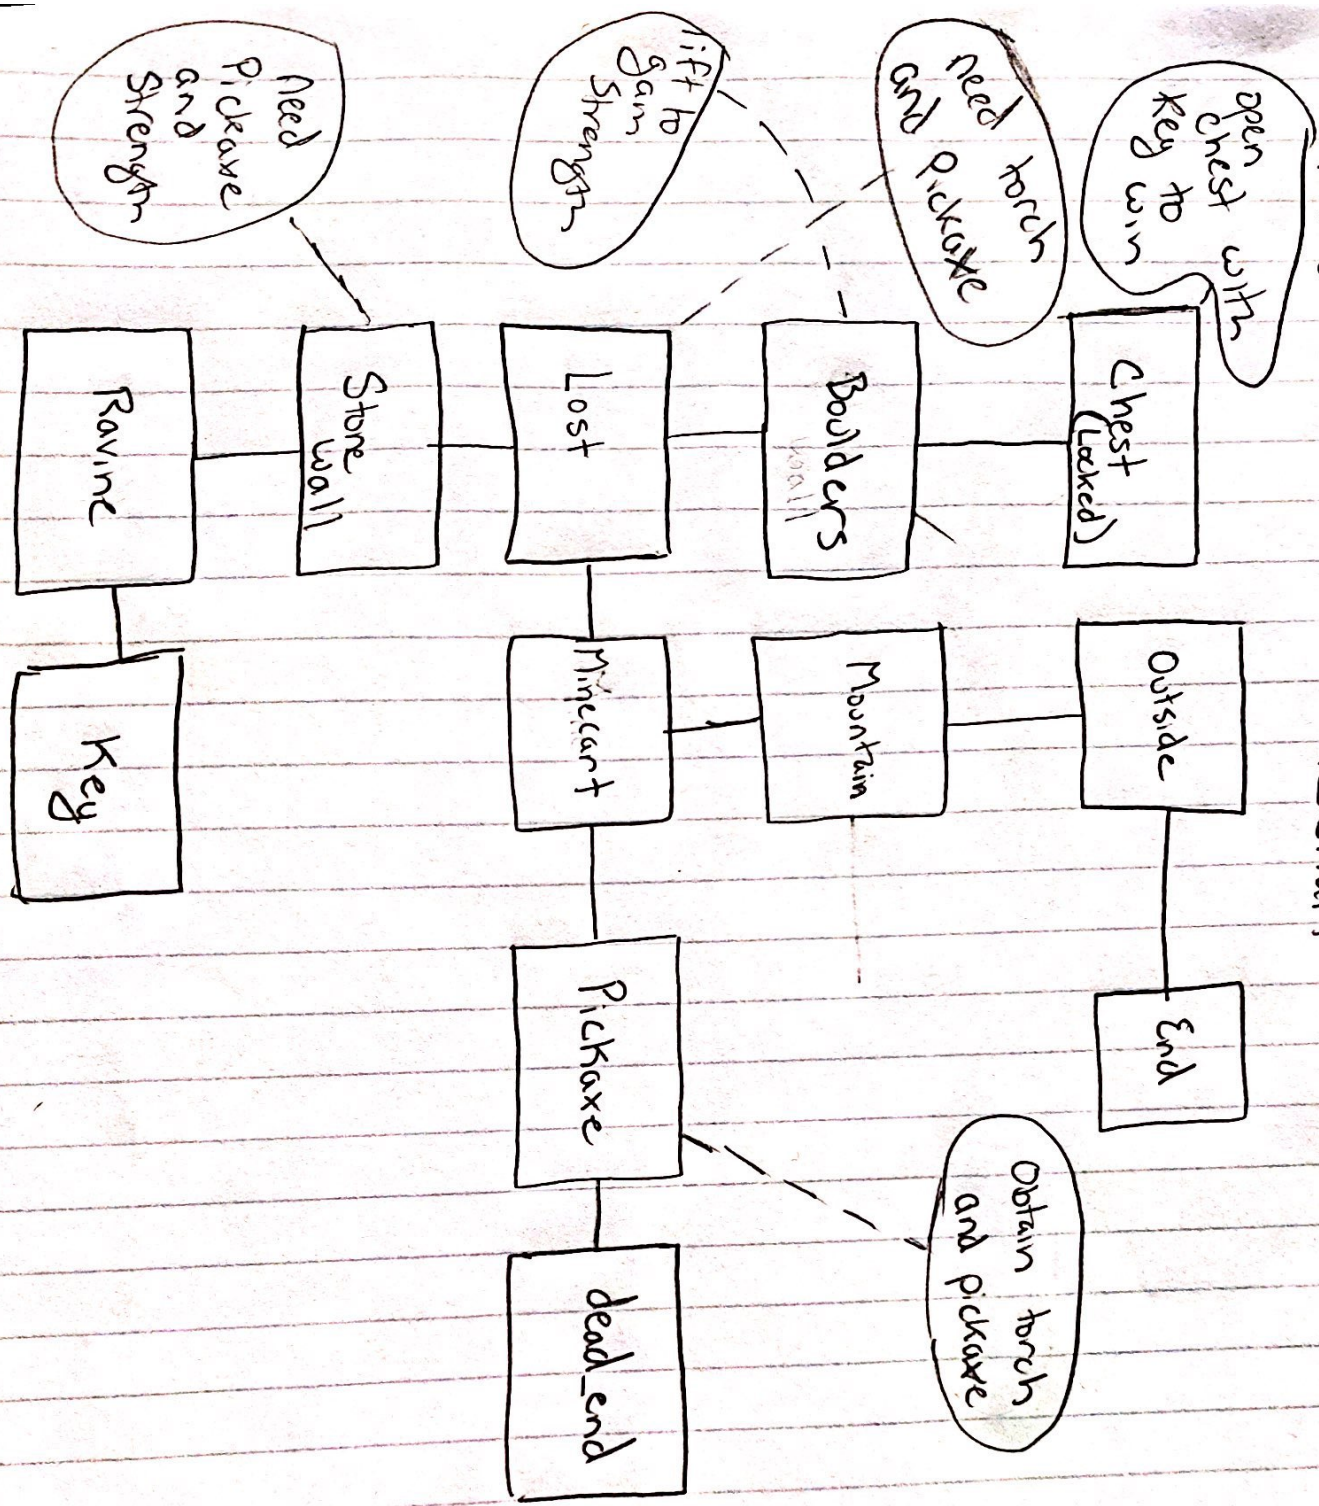 open
chest with
key to
win
need torch
and Pickaxe
lift to
gain
Strength
need
Pickaxe
and
Strength
Chest
(Locked)
Boulders
wall
Lost
Stone
wall
Ravine
Outside
Mountain
Minecart
Key
End
Pickaxe
dead_end
Obtain torch
and pickaxe